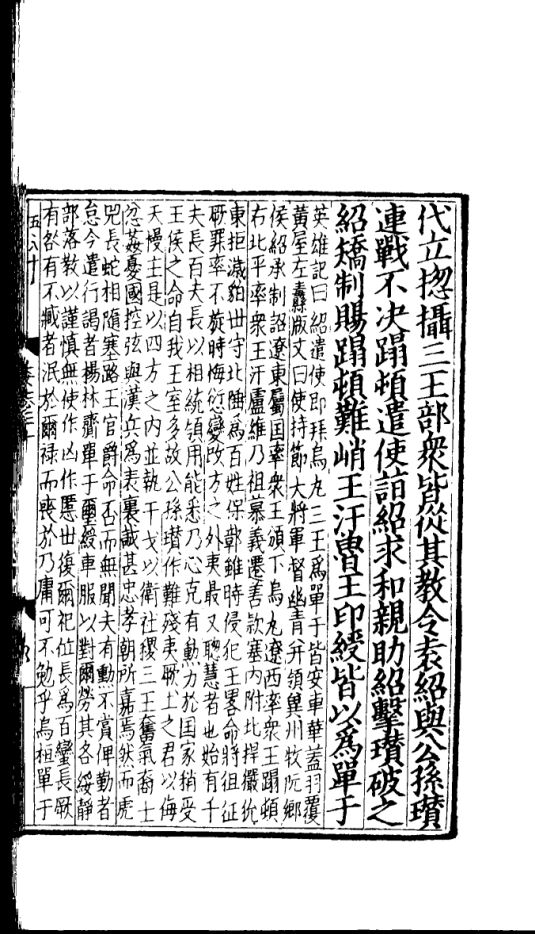 代立揔攝三王部衆皆從其教令袁紹與公孫瓉
連戰不决蹋頓遣使詣紹求和親助紹擊瓉破之
紹矯制賜蹋頓難峭王汗魯王印綬皆以爲單于
英雄記曰紹遣使即拜烏丸三王爲單于皆安車華蓋羽覆
黃屋左纛版文曰使持節大將軍督幽青并領冀州牧阮鄉
侯紹承制詔遼東屬國率衆王頒下烏丸遼西率衆王蹋頓
右北平率衆王汗盧維乃祖慕義遷善款塞內附北捍玁狁
東拒濊貊世守北陲爲百姓保鄣雖時侵犯王畧命將徂征
厥罪率不旋時悔愆變改方之外夷最又聰慧者也始有千
夫長百夫長以相統領用能悉乃心克有勳力於國家稍受
王侯之命自我王室多故公孫瓉作難殘夷厥土之君以侮
天慢主是以四方之內並執干戈以衛社稷三王奮氣裔土
忿姦憂國控弦與漢兵爲表裏誠甚忠孝朝所嘉焉然而虎
兕長蛇相隨塞路王官爵命否而無聞夫有勳不賞俾勤者
怠今遣行謁者楊林齎單于璽綬車服以對爾勞其各綏靜
部落教以謹慎無使作凶作慝世復爾祀位長爲百蠻長厥
有咎有不臧者泯於爾祿而喪於乃庸可不勉乎烏桓單于